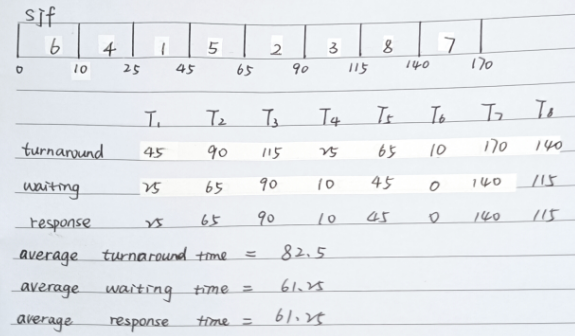 sjf
6 4 1 5 2 3 8 7
0 10 25 45 65 90 115 140 170
T1 T2 T3 T4 T5 T6 T7 T8
turnaround 45 90 115 25 65 10 170 140
waiting 25 65 90 10 45 0 140 115
response 25 65 90 10 45 0 140 115
average turnaround time = 82.5
average waiting time = 61.25
average response time = 61.25